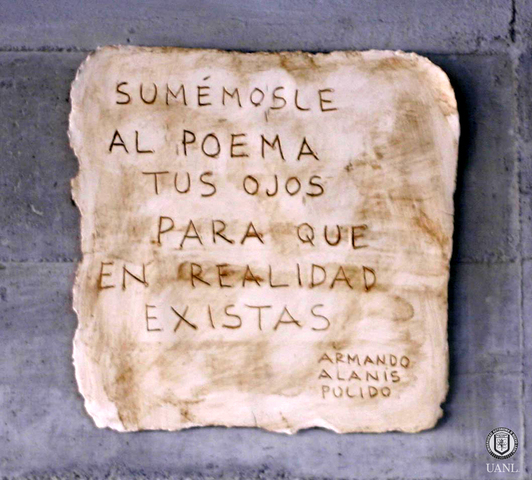 SUMÉMOSLE
AL POEMA
TUS OJOS
PARA QUE
EN REALIDAD
EXISTAS
ARMANDO
ALANIS
PULIDO
UANL